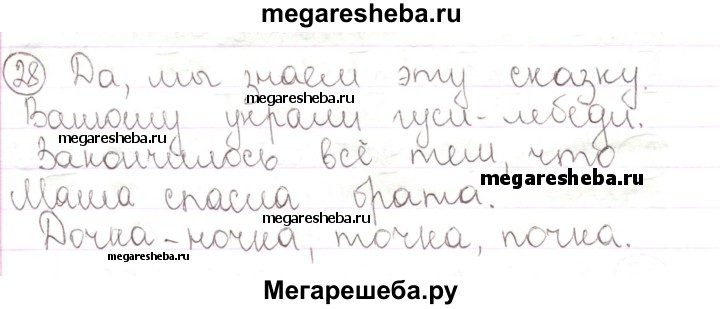 megaresheba.ru
28 Да, мы знаем эту сказку.
megaresheba.ru
Вашошу украли гуси-лебеди.
megaresheba.ru
megaresheba.ru
Закончилось всё тем, что
megaresheba.ru
Маша спасла брата.
megaresheba.ru
Дочка-ночка, точка, почка.
megaresheba.ru
Мегарешеба.ру